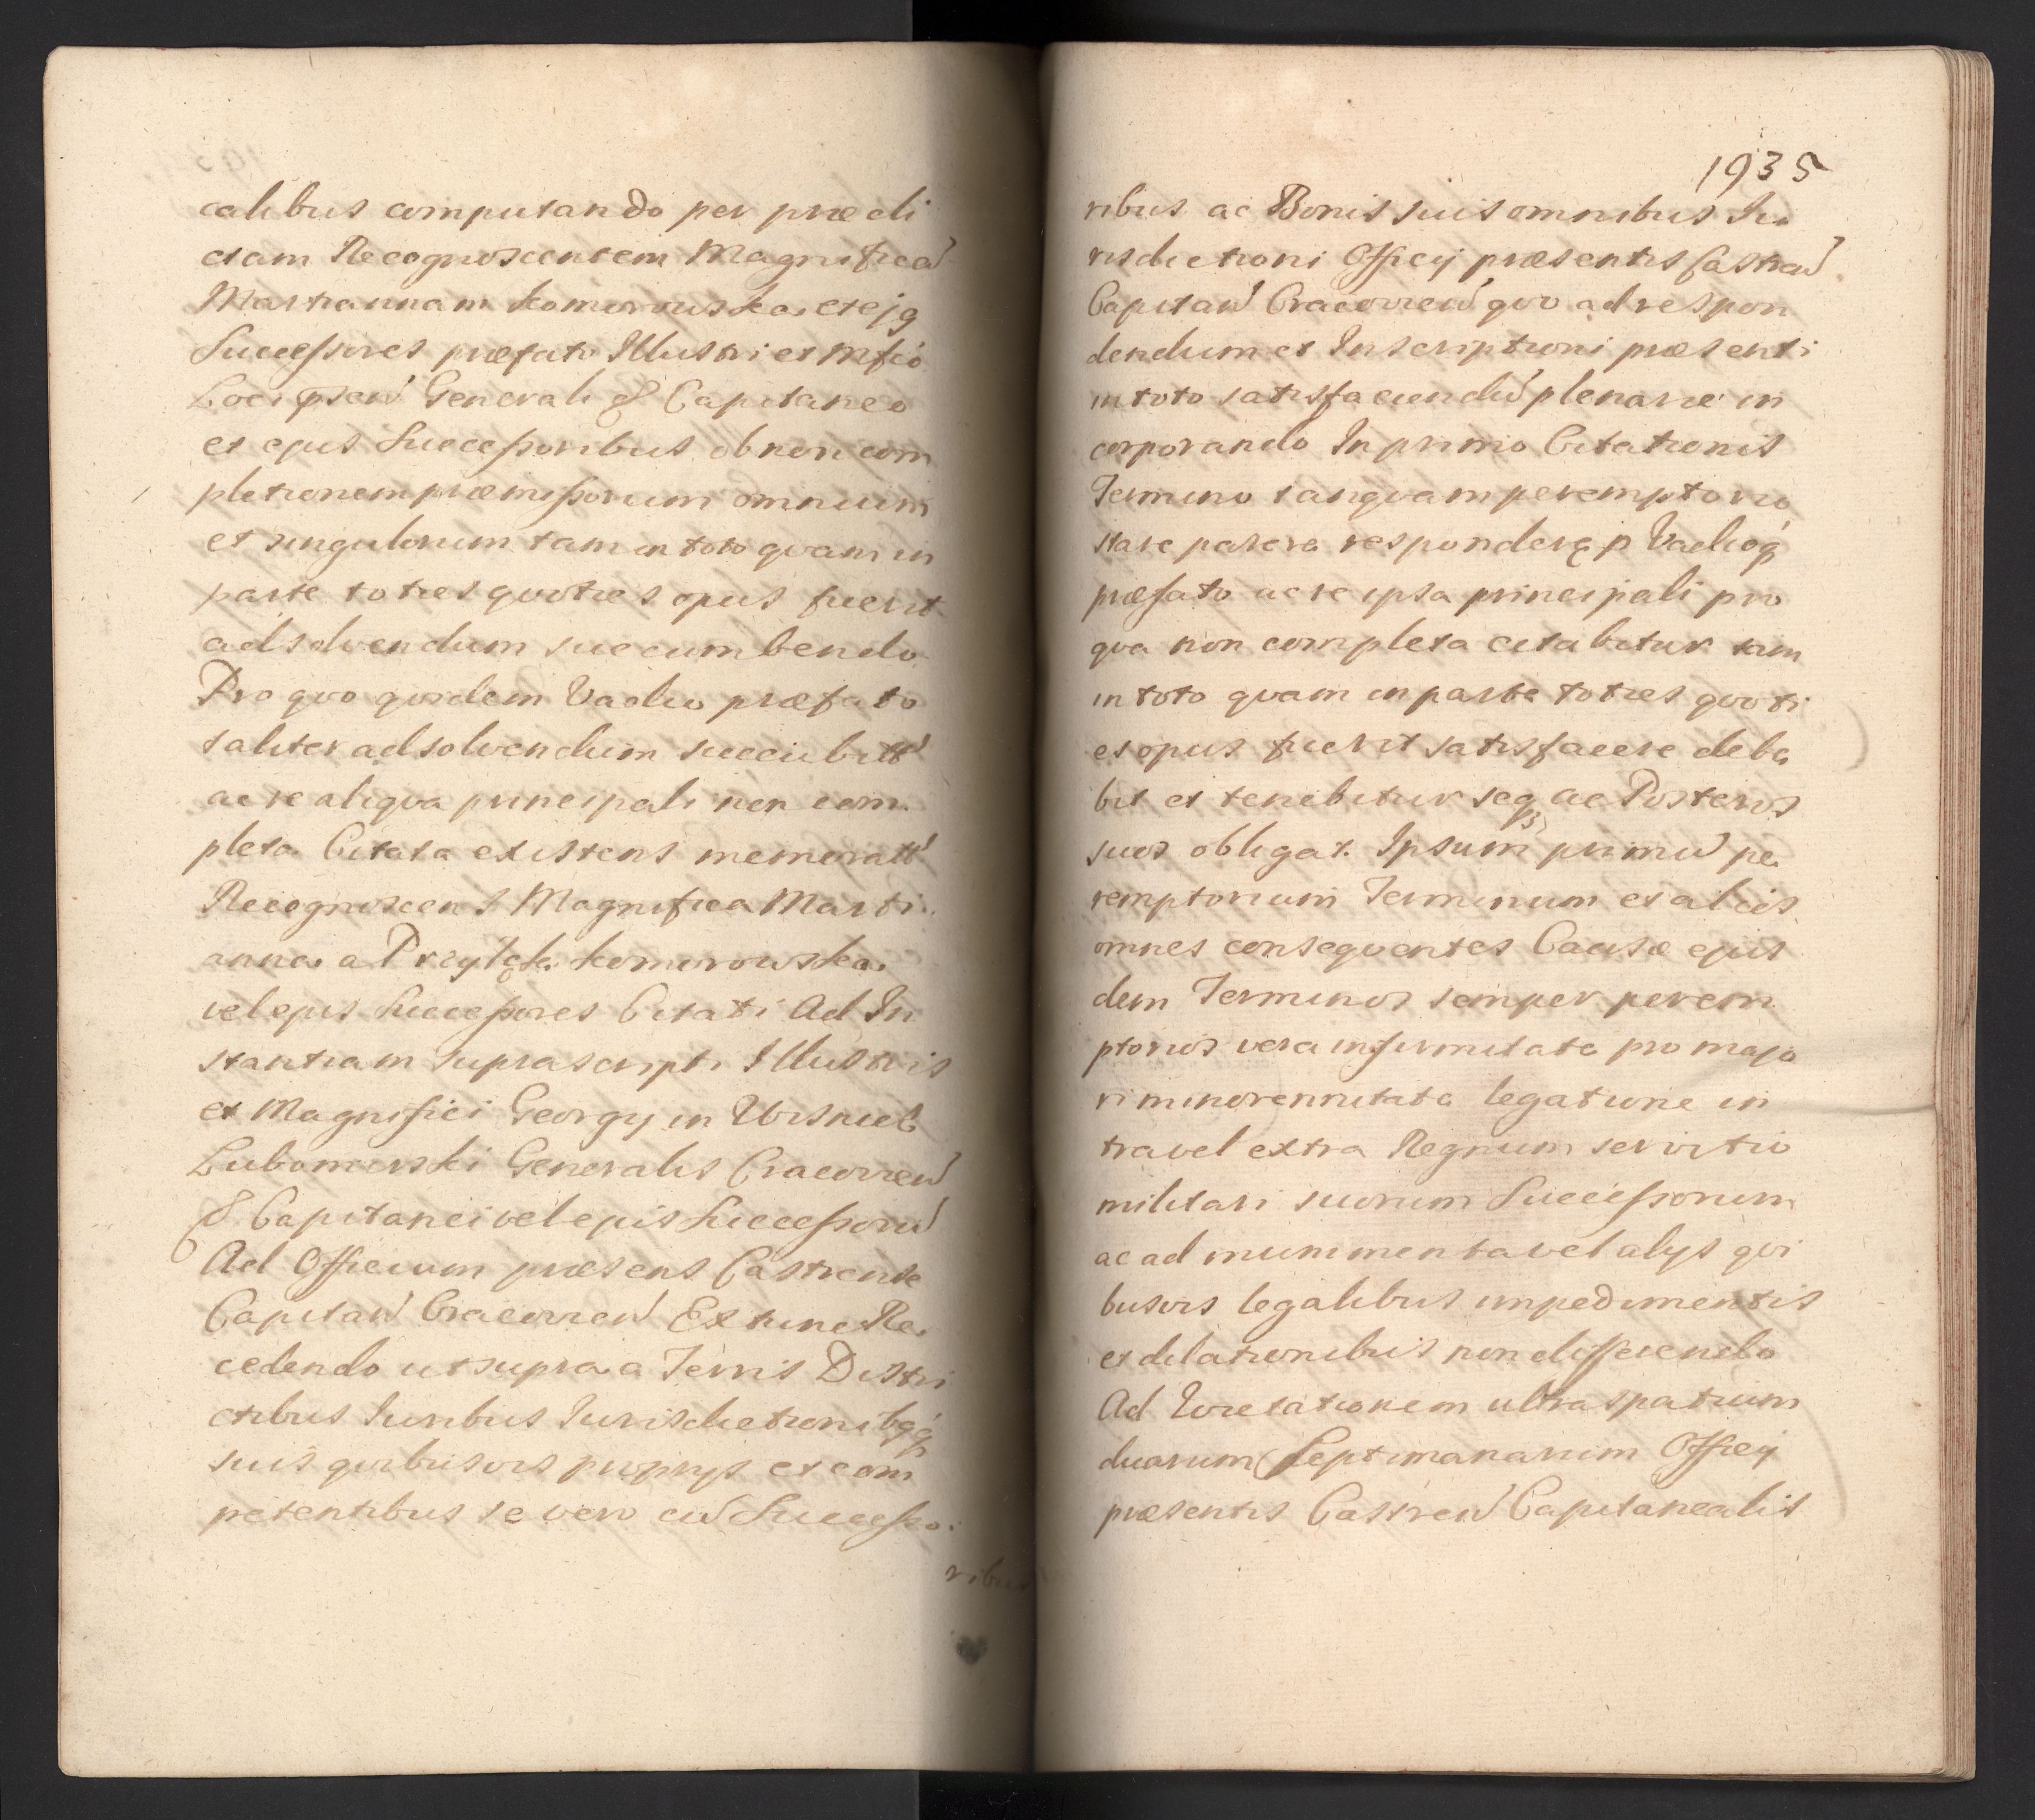 calibus computando per prædi
ctam Recognoscentem Magnificã
Martiannam Komorowska, et ejq
Successores præfato Illustri et Mfco
Locumtñen Generali & Capitaneo
et ejus Successoribus ob non com
pletionem præmissorum omnium
et singulorum tam in toto quam in
parte toties quoties opus fuerit
ad solvendum succumbendo
Pro quo quidem Vadio præfato
taliter ad solvendum succubitt
ac re aliqva principali non com
pleta Citata existens memoratt
Recognoscens Magnifica Marti
anna a Komorowska
vel ejus Successores Citati Ad In
stantiam suprascripti Illustris
et Magnifici Georgy in Wisnicz
Lubomirski Generalis Cracovien
& Capitanei vel ejus Successorũ
Ad Officium præsens Castrense
Capitan Cracovien Ex tunc Re
cedendo ut supra a Terris Distri
ctibus Iuribus Iurisdictionibqq
suis quibusvis proprys et com
petentibus se vero cũ Successo
ribus
1935
ribus ac Bonis suis omnibus Iu
risdictioni Officij præsentis Castren
Capitan Cracovien quo ad respon
dendum et Inscriptioni præsenti
in toto satisfaciendũ plenarie in
corporando In primo Citationis
Termino tanquam peremptorio
stare parere respondere p Vadioq
præfato ac re ipsa principali pro
qva non completa citabitur tam
in toto qvam in parte toties quoti
es opus fuerit satisfacere debe
bit et tenebitur seq ac Posteros
suos obligat. Ipsum primũ pe
remptorium Terminum et alios
omnes conseqventes Causæ ejus
dem Terminos semper perem
ptorios vera infirmitate pro majo
ri minorennitate legatione in
tra vel extra Regnum servitio
militari suorum Successorum
ac ad munimenta vel alys qvi
busvis legalibus impedimentis
et dilationibus non differendo
Ad Qvietationem ultra spatium
duarum Septimanarum Officij
præsentis Castren Capitanealis